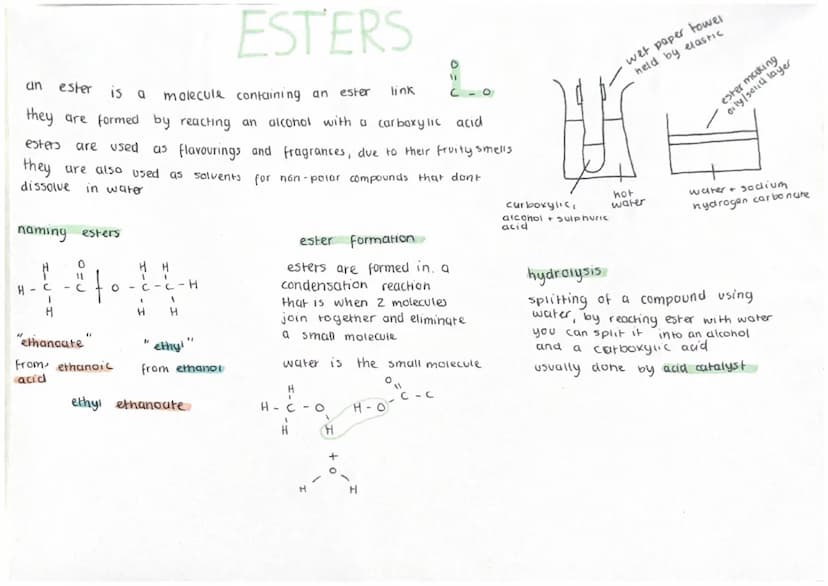 ESTERS
an ester is a molecule containing an ester link
O
"
C - O
they are formed by reacting an alcohol with a carboxylic acid
esters are used as flavourings and fragrances, due to their fruity smells
they are also used as solvents for non-polar compounds that dont
dissolve in water
wet paper towel
held by elastic
carboxylic,
alcohol + sulphuric
acid
hot
water
ester making
oily/solid layer
water + sodium
hydrogen carbonate
naming esters
H O H H
H - C - C O - C - C - H
H H H
"ethanoate" "ethyl"
from ethanoic from ethanol
acid
ethyl ethanoate
ester formation
esters are formed in a
condensation reaction
that is when 2 molecules
join together and eliminate
a small molecule
water is the small molecule
H O
H - C - O H - O C - C
H H
+
O
H H
hydrolysis
splitting of a compound using
water, by reacting ester with water
you can split it into an alcohol
and a carboxylic acid
usually done by acid catalyst